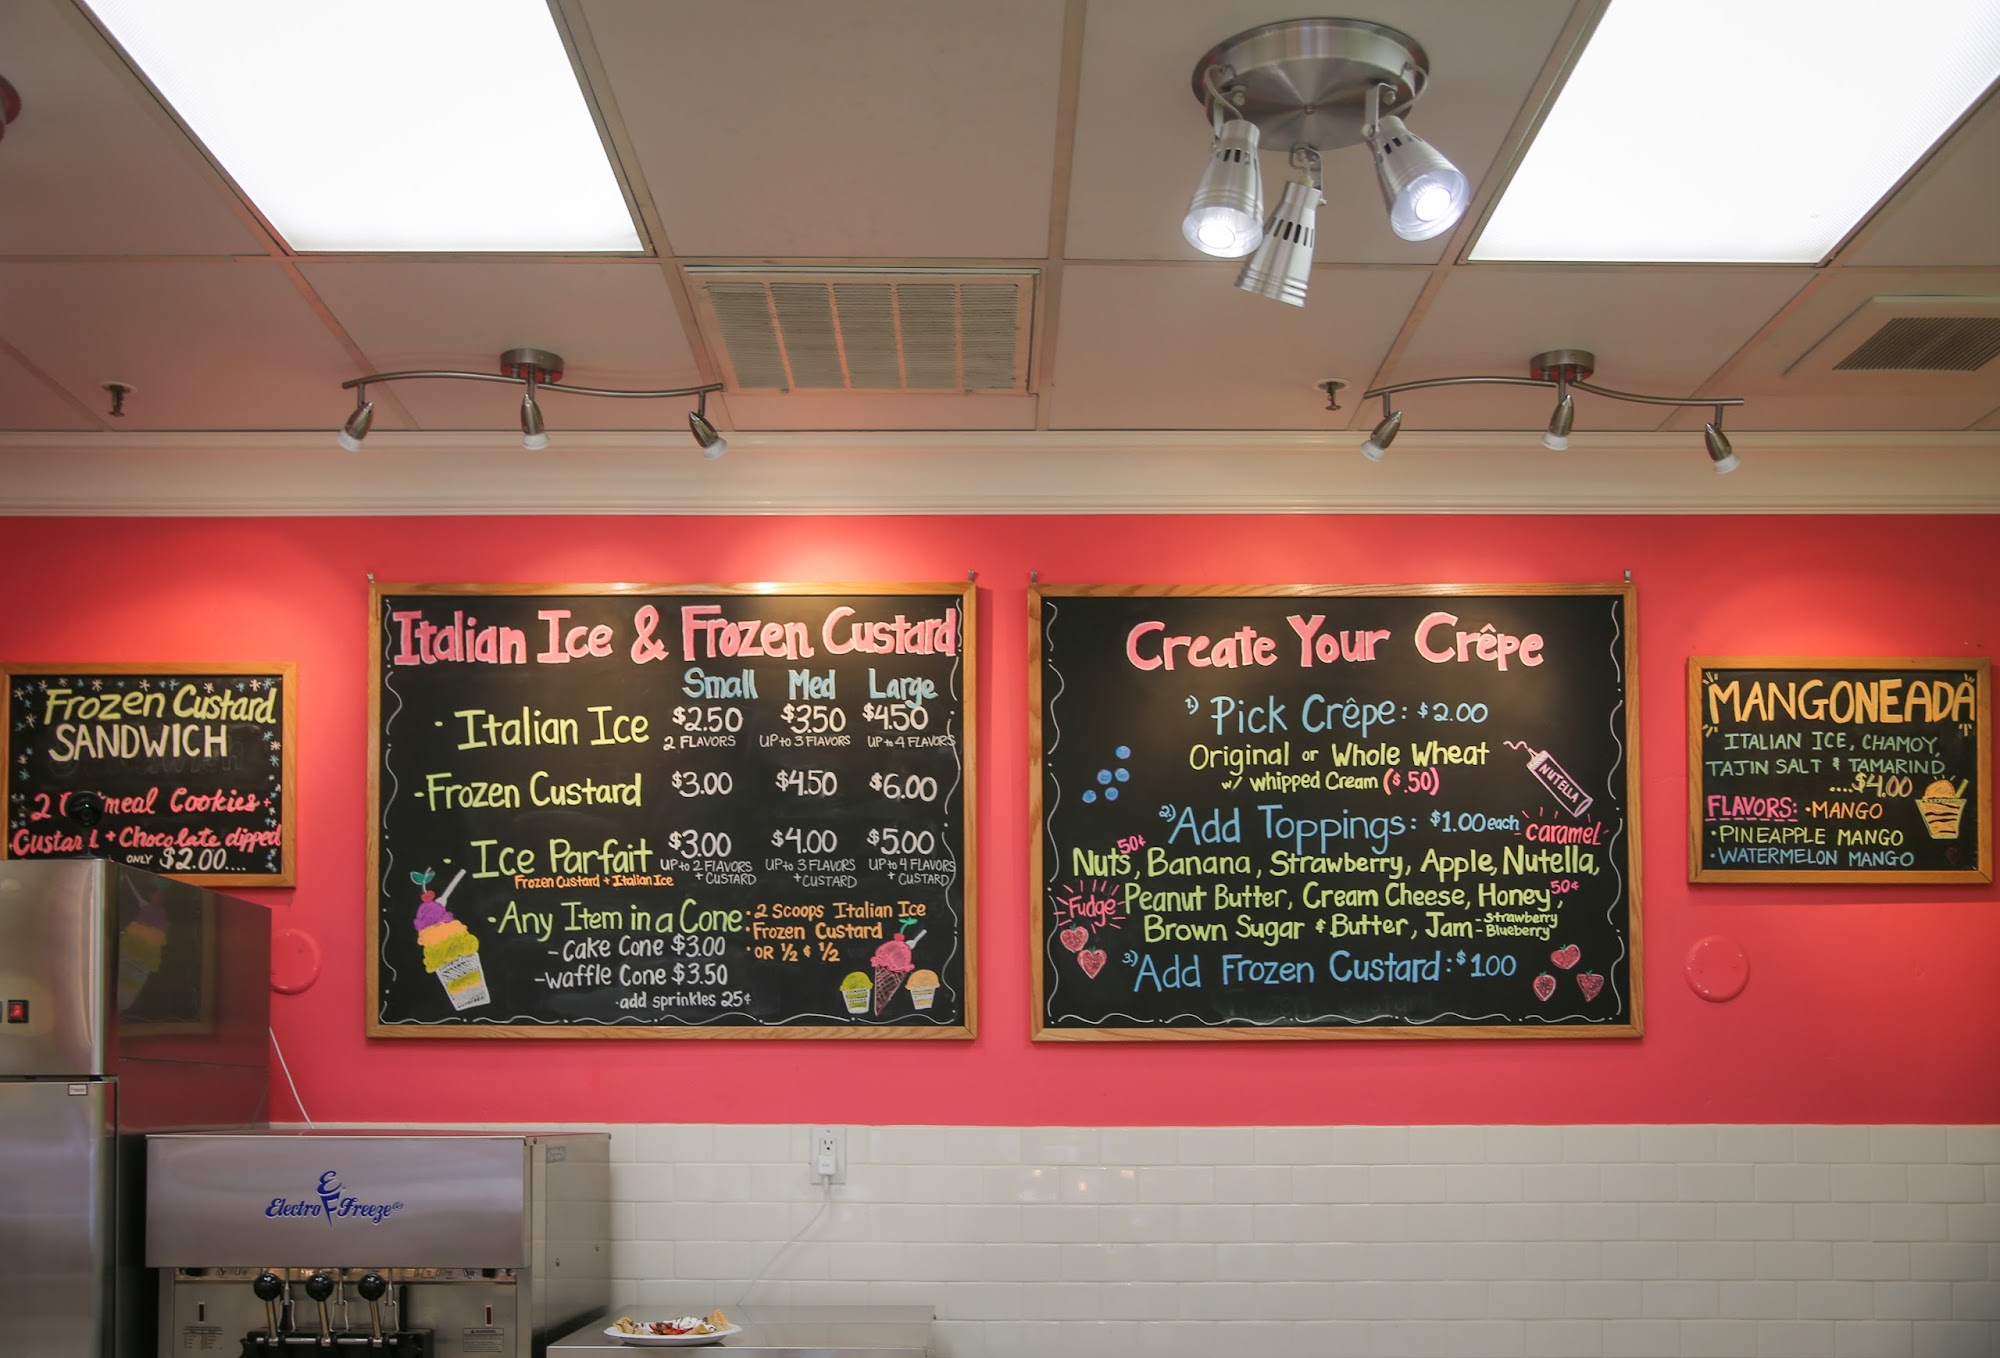 Frozen Custard
SANDWICH
2 Oatmeal Cookies +
Custard + Chocolate dipped
ONLY $2.00....
Italian Ice & Frozen Custard
Small Med Large
· Italian Ice $2.50 $3.50 $4.50
2 FLAVORS UP to 3 FLAVORS UP to 4 FLAVORS
- Frozen Custard $3.00 $4.50 $6.00
· Ice Parfait $3.00 $4.00 $5.00
Frozen Custard + Italian Ice
UP to 2 FLAVORS + CUSTARD UP to 3 FLAVORS + CUSTARD UP to 4 FLAVORS + CUSTARD
· Any Item in a Cone
- Cake Cone $3.00
- Waffle Cone $3.50
· add sprinkles 25¢
· 2 Scoops Italian Ice
· Frozen Custard
· OR ½ & ½
Create Your Crêpe
1) Pick Crêpe: $2.00
Original or Whole Wheat
w/ Whipped Cream ($.50)
NUTELLA
2) Add Toppings: $1.00 each
caramel
Nuts 50¢, Banana, Strawberry, Apple, Nutella,
Fudge
Peanut Butter, Cream Cheese, Honey 50¢,
Brown Sugar & Butter, Jam - Strawberry Blueberry
3) Add Frozen Custard: $1.00
MANGONEADA
ITALIAN ICE, CHAMOY,
TAJIN SALT & TAMARIND
....$4.00
FLAVORS: · MANGO
· PINEAPPLE MANGO
· WATERMELON MANGO
Electro Freeze